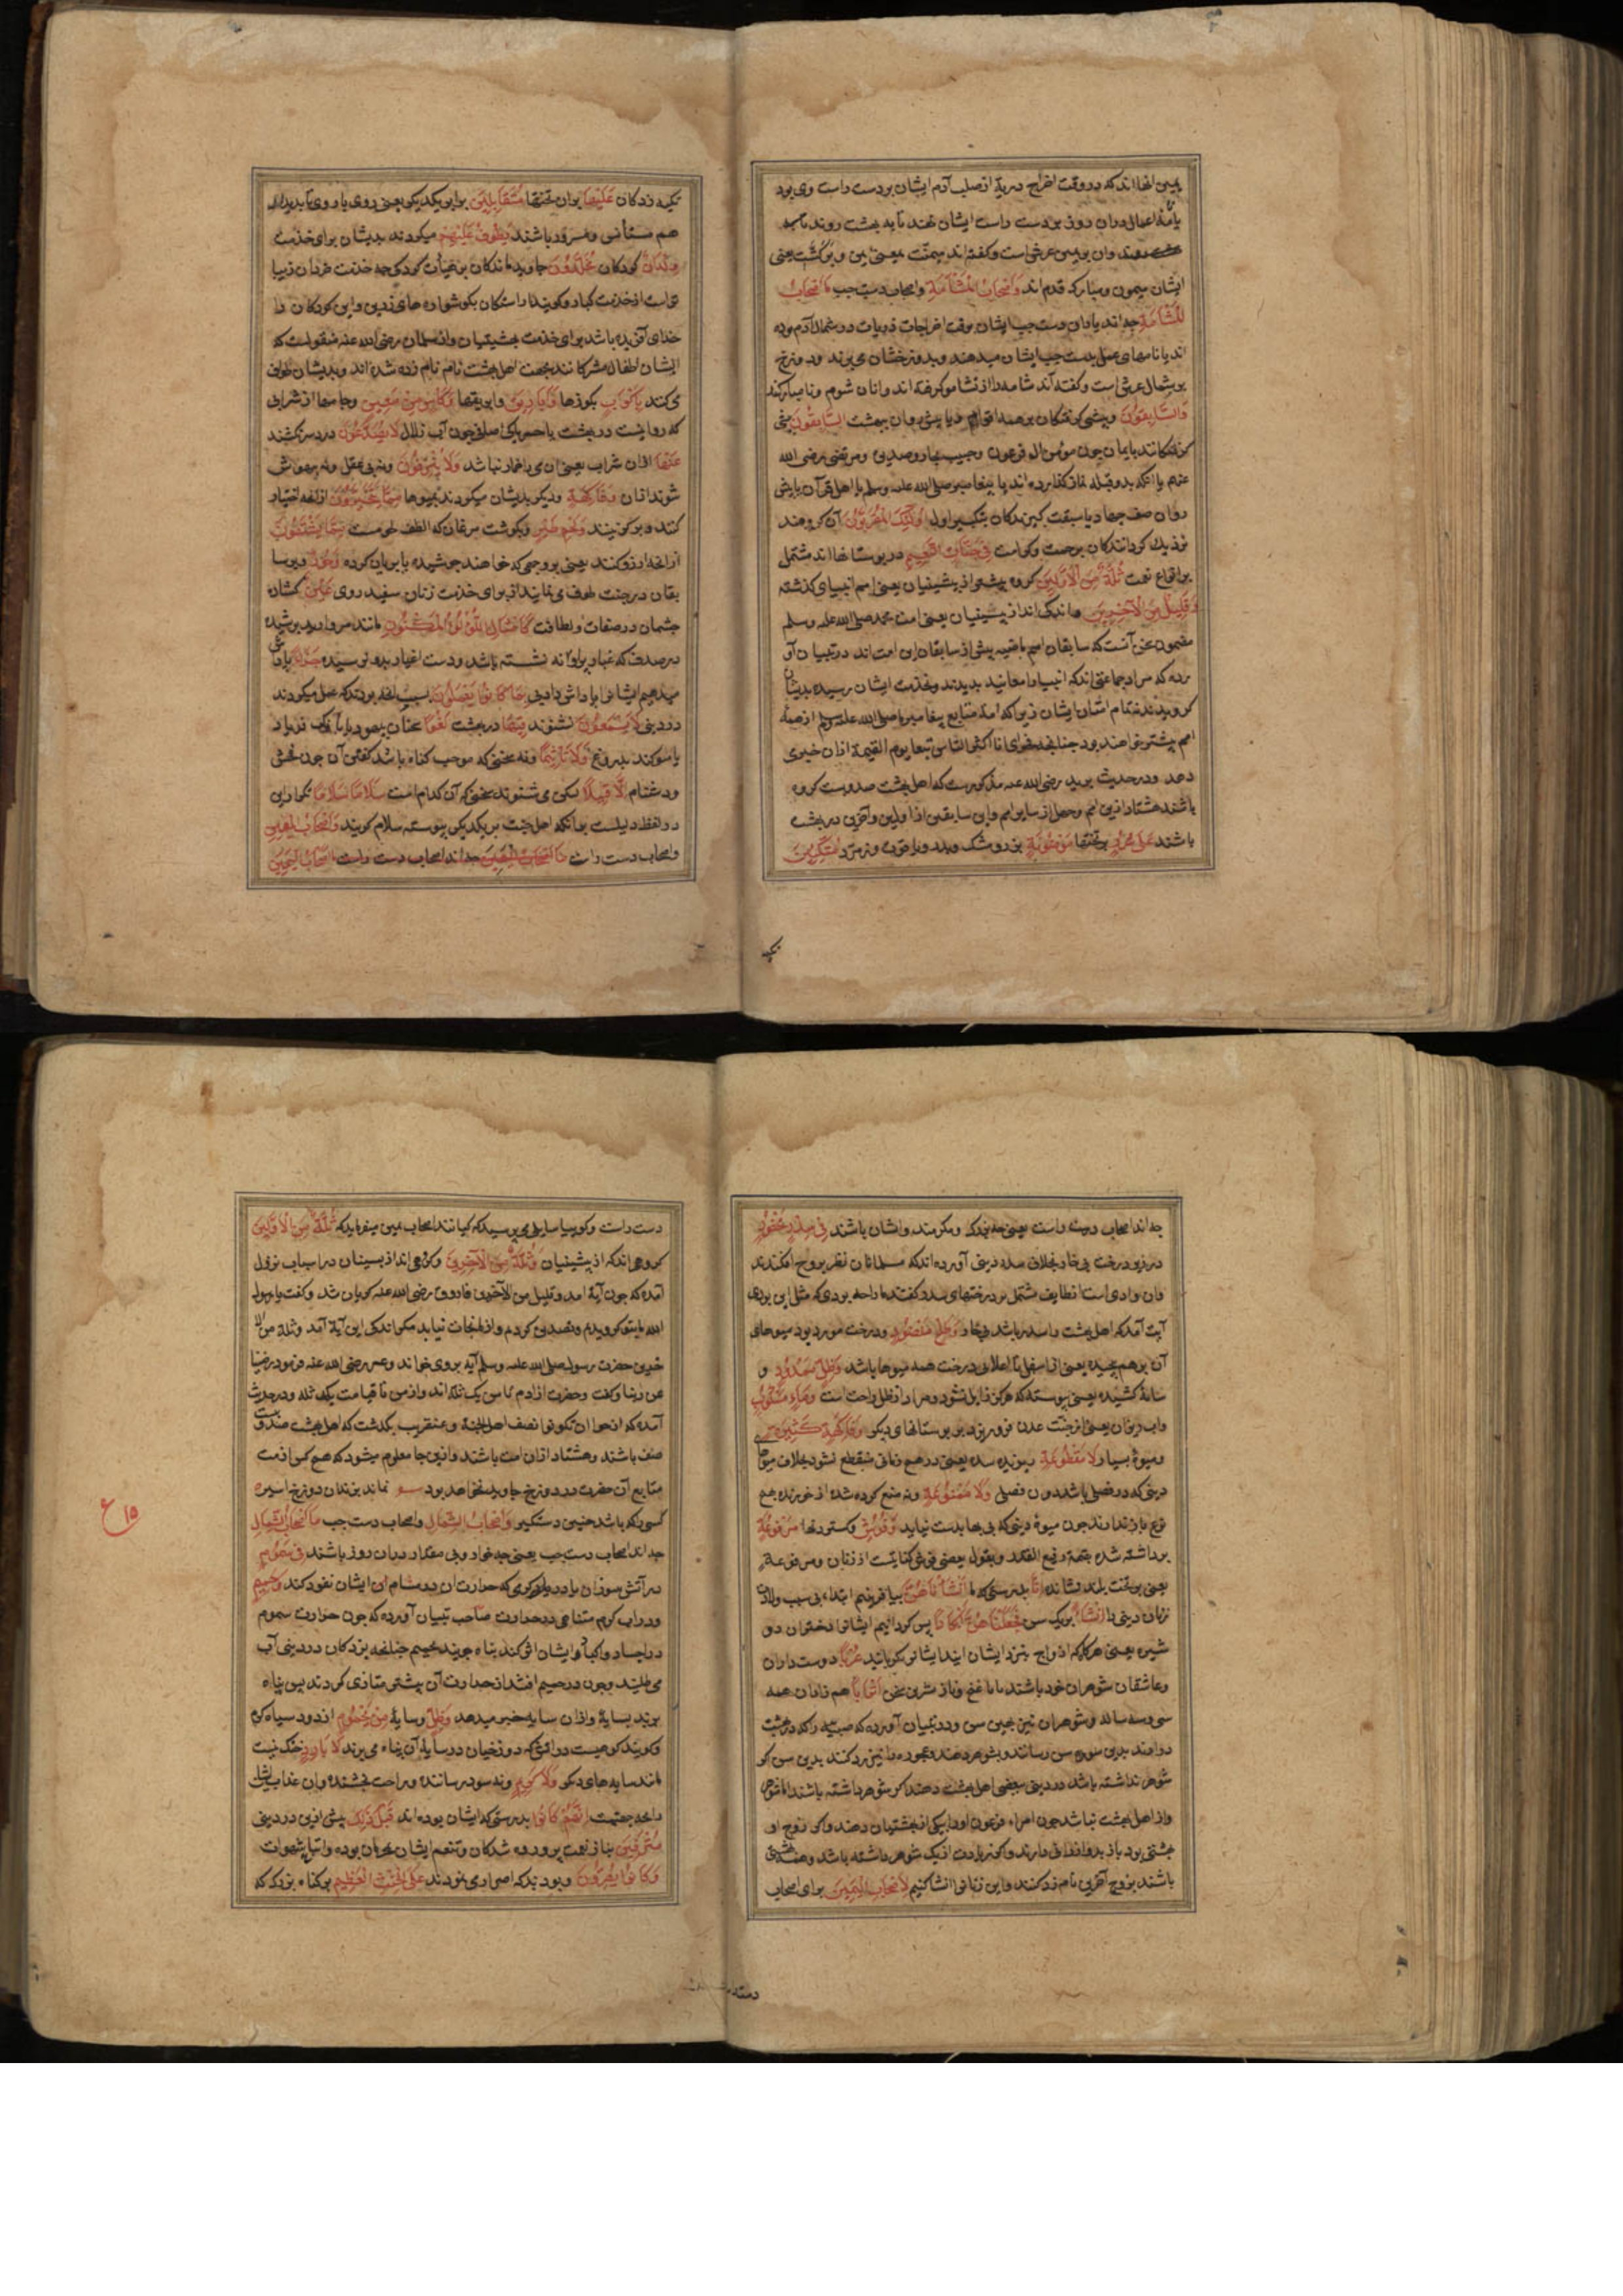 یمین انها اند که در وقت اخراج ذریة از صلب آدم ایشان بر دست راست وی بود
یا نامه اعمال در ان روز بر دست راست ایشان نهند تا به بهشت روند
روند وان بر یمین عرش است وگفته اند میمنت بمعنی یمن و برکت یعنی
ایشان میمون ومبارک قدم اند وَاَصْحَابُ الْمَشْأَمَةِ واصحاب دست چپ مَا اَصْحَابُ
الْمَشْأَمَةِ چه اند یاران دست چپ ایشان بوقت اخراجات ذریات در شمال آدم بوده
اند یا نامهای عمل بدست چپ ایشان میدهند وبدوزخشان می برند ودوزخ
بر شمال عرش است وگفته اند شامه را از نشام گرفته اند وانان شوم ونامبارکند
وَالسَّابِقُونَ وپیشی کرفتکان بر همه اقوام دریا پیش روان ببهشت السَّابِقُونَ پیشی
کرفتکانند بایمان چون مؤمن ال فرعون وحبیب نجار وصدیق ومرتضی رضی الله
عنهم یا انکه بدو قبله نماز کذارده اند با پیغامبر صلی الله علیه وسلم یا اهل قرآن یا پیش
روان صف جهاد یا سبقت کیرندکان بتکبیر اول اُولٰئِکَ الْمُقَرَّبُونَ آن کروهند
نزدیک کردانندکان برحمت وکرامت فِی جَنَّاتِ النَّعِیمِ در بوستانها اند مشتمل
بر انواع نعمت ثُلَّةٌ مِنَ الْاَوَّلِینَ کروه بیشتر از پیشینیان یعنی امم انبیای کذشته
وَقَلِیلٌ مِنَ الْآخِرِینَ واندک اند از پسینیان یعنی امت محمد صلی الله علیه وسلم
مضمون سخن آنست که سابقان امم ماضیه بیش از سابقان این امت اند در تبیان آو
رده که مراد جماعتی اند که انبیا را معاینه بدیدند وبخدمت ایشان رسیده بدیشان
کرویدند نه تمام امتان ایشان زیرا که امت متابع پیغامبر ما صلی الله علیه وسلم از همه
امم بیشتر خواهند بود چنانچه فحوای انا اکثر الناس تبعا یوم القیمة ازان خبری
دهد ودر حدیث برید رضی الله عنه مذکورست که اهل بهشت صد وبیست کروه
باشند هشتاد ازین امم وچهل از سایر امم واین سابقین از اولین وآخرین در بهشت
باشند عَلَی سُرُرٍ بر تختها مَوْضُونَةٍ بزر ومشک ودر ویاقوت وزمرد مُتَّکِئِینَ
تکیه
تکیه زدکان عَلَیْهَا بران تختها مُتَقَابِلِینَ برابر یکدیکر یعنی روی با روی تا بدیدار
هم مستأنس ومسرور باشند یَطُوفُ عَلَیْهِم میکردند بدیشان برای خدمت
وِلْدَانٌ کودکان مُخَلَّدُونَ جاوید ماندکان بر هیأت کودکی چه خدمت خردان زیبا
تر است از خدمت کبار وکویند اراستکان بکوشواره های زرین واین کودکان را
خدای آفریده باشد برای خدمت بهشتیان واز سلمان رضی الله عنه منقولست که
ایشان اطفال مشرکانند بجهت اهل بهشت نام زده شده اند وبدیشان طواف
می کنند بِاَکْوَابٍ بکوزها وَاَبَارِیقَ وابریقها وَکَأْسٍ مِنْ مَعِینٍ وجامها از شرابی
که روانست در بهشت یا خمر پاک صافی چون آب زلال لَا یُصَدَّعُونَ درد سر نکشند
عَنْهَا ازان شراب یعنی ان می با خمار نباشد وَلَا یُنْزِفُونَ ونه بی عقل ونه بیهوش
شوند ازان وَفَاکِهَةٍ ودیکر بدیشان میکردند بمیوها مِمَّا یَتَخَیَّرُونَ از انچه اختیار
کنند وبرکزینند وَلَحْمِ طَیْرٍ وبکوشت مرغان که الطف لحومست مِمَّا یَشْتَهُونَ
از انچه ارزو کنند یعنی بر وجهی که خواهند جوشیده یا بریان کرده وَحُورٌ وبر سا
بقان در جنت طوف می نمایند از برای خدمت زنان سفید روی عِینٌ کشاده
چشمان در صفات ولطافت کَاَمْثَالِ اللُّؤْلُؤِ الْمَکْنُونِ مانند مروارید پوشیده
در صدف که غبار بر او نه نشسته باشد ودست اغیار بدو نرسیده جَزَاءً پاداش
میدهیم ایشانرا پاداش دادنی بِمَا کَانُوا یَعْمَلُونَ بسبب انچه بودند که عمل میکردند
در دنیی لَا یَسْمَعُونَ نشنوند فِیهَا در بهشت لَغْوًا سخنان بیهوده یا فریاد
یا سوکند بدروغ وَلَا تَأْثِیمًا ونه سخنی که موجب کناه باشد کفتن آن چون فحش
ودشنام اِلَّا قِیلًا لیکن می شنوند سخنی که آن کدام است سَلَامًا سَلَامًا تکرار این
در لفظ دلیلست برانکه اهل جنت بر یکدیکر پیوسته سلام کویند وَاَصْحَابُ الْیَمِینِ
واصحاب دست راست مَا اَصْحَابُ الْیَمِینِ چه اند اصحاب دست راست اصحاب الیمین
چه اند اصحاب دست راست یعنی چه بزرکوار ومکرمند وایشان باشند فِی سِدْرٍ مَخْضُودٍ
در زیر درخت بی خار بخلاف سدره دنیی آورده اند که مسلمانان نظر بر وج افکندند
وان وادی است از طایف مشتمل بر درختهای سدر وکفتند ما را چه بودی که مثل این بودی
آیت آمد که اهل بهشت را سدر باشد بی خار وَطَلْحٍ مَنْضُودٍ ودرخت موز بود میوهای
آن بر هم چیده یعنی از اسفل تا اعلای درخت همه میوها باشد وَظِلٍّ مَمْدُودٍ و
سایهٔ کشیده یعنی پیوسته که هرکز زایل نشود ومراد از ظل راحت است وَمَاءٍ مَسْکُوبٍ
واب ریزان یعنی از جنت عدن فرو ریزد بر بوستانهای دیکر وَفَاکِهَةٍ کَثِیرَةٍ
ومیوهٔ بسیار لَا مَقْطُوعَةٍ بریده شده یعنی در هیچ زمانی منقطع نشود بخلاف میوهای
دنیی که در فصلی باشد دون فصلی وَلَا مَمْنُوعَةٍ ونه منع کرده شده از خورنده بهیچ
نوع باز ندارند چون میوهٔ دنیی که بی بها بدست نیاید وَفُرُشٍ وکستردنها مَرْفُوعَةٍ
برداشته شده بتهمة رفیع القدر وبقول بعضی فرش کنایتست از زنان ومرفوعة
یعنی بر تخت بلند نشانده اِنَّا بدرستی که ما اَنْشَأْنَاهُنَّ بیافریدیم ابتداء بی سبب ولادت
زنان دنیی را اِنْشَاءً بر یک سن فَجَعَلْنَاهُنَّ اَبْکَارًا پس کردانیم ایشانرا دختران دو
شیزه یعنی هرکاه که ازواج بنزد ایشان ایند ایشانرا بکر یابند عُرُبًا دوست داران
وعاشقان شوهران خود باشند یا با غنج وناز شیرین سخن اَتْرَابًا هم زادان همه
سی وسه ساله وشوهران نیز بهمین سن ودر تبیان آورده که صبیّه را که در بهشت
در ارند بدین سن رسانند وبشوهر دهند وعجوزه را نیز رد کنند بدین سن کر
شوهر نداشته باشد در دنیی ببعضی اهل بهشت دهند اکر شوهر داشته باشند اما شوهر
واز اهل بهشت نباشد چون امراه فرعون اورا بیکی از بهشتیان دهند واکر زوج او
بهشتی بود باز بدو ارزانی دارند واکر زیادت از یک شوهر داشته باشد وهمه بهشتی
باشند بزوج آخرین نام زد کنند واین زنانرا انشا کنیم لِاَصْحَابِ الْیَمِینِ برای اصحاب
دست
دست راست وکوییا سایلی می پرسید که کیانند اصحاب یمین میفرماید که ثُلَّةٌ مِنَ الْاَوَّلِینَ
کروهی اند که از پیشینیان وَثُلَّةٌ مِنَ الْآخِرِینَ وکروهی اند از پسینیان در اسباب نزول
آمده که چون آیة امد وقلیل من الآخرین فاروق رضی الله عنه کریان شد وکفت یا رسول
الله ما بتو کرویدیم وتصدیق کردیم واز ما نجات نیابد مکر اندکی این آیة آمد وثلة من الا
خرین حضرت رسول صلی الله علیه وسلم آیه بر وی خواند وعمر رضی الله عنه فرمود رضینا
عن ربنا وکفت وحضرت از ادم تا من یک ثله اند واز من تا قیامت یک ثله ودر حدیث
آمده که ارجوا ان تکونوا نصف اهل الجنة وعنقریب بکذشت که اهل بهشت صد وبیست
صف باشند وهشتاد ازان امت باشند وازین جا معلوم میشود که هیچ کس از مت
متابع آن حضرت در دوزخ جاوید نخواهد بود نماند بزندان دوزخ اسیر
کسی که باشد چنین دستکیر وَاَصْحَابُ الشِّمَالِ واصحاب دست چپ مَا اَصْحَابُ الشِّمَالِ
چه اند اصحاب دست چپ یعنی چه خوار وبی مقدار در ان روز باشند فِی سَمُومٍ
در آتش سوزان یا در باد کرمی که حرارت ان در مسام ایشان نفوذ کند وَحَمِیمٍ
ودر اب کرم متناهی در حرارت صاحب تبیان آورده که چون حرارت سموم
در اجساد واکباد ایشان اثر کند پناه جویند بحمیم چنانچه بزدکان در دنیی آب
می طلبند وچون در حمیم افتند از حرارت آن بیشتر متاذی کردند پس پناه
برند بسایهٔ وازان سایه خبر میدهد وَظِلٍّ وسایهٔ مِنْ یَحْمُومٍ از دود سیاه کرم
وکویند کوهیست در اتش که دوزخیان در سایهٔ آن پناه می برند لَا بَارِدٍ خنک نیست
مانند سایه های دیکر وَلَا کَرِیمٍ ونه سود رسانده وراحت بخشنده وان عذاب ایشانرا
بچه جهتست اِنَّهُمْ کَانُوا بدرستی که ایشان بوده اند قَبْلَ ذٰلِکَ پیش ازین در دنیی
مُتْرَفِینَ بناز نعمت پرورده شدکان وتنعم ایشان بحرمان بوده واتباع شهوات
وَکَانُوا یُصِرُّونَ وبودند که اصرار می نمودند عَلَی الْحِنْثِ الْعَظِیمِ بر کناه بزرک که
ع ۱۵